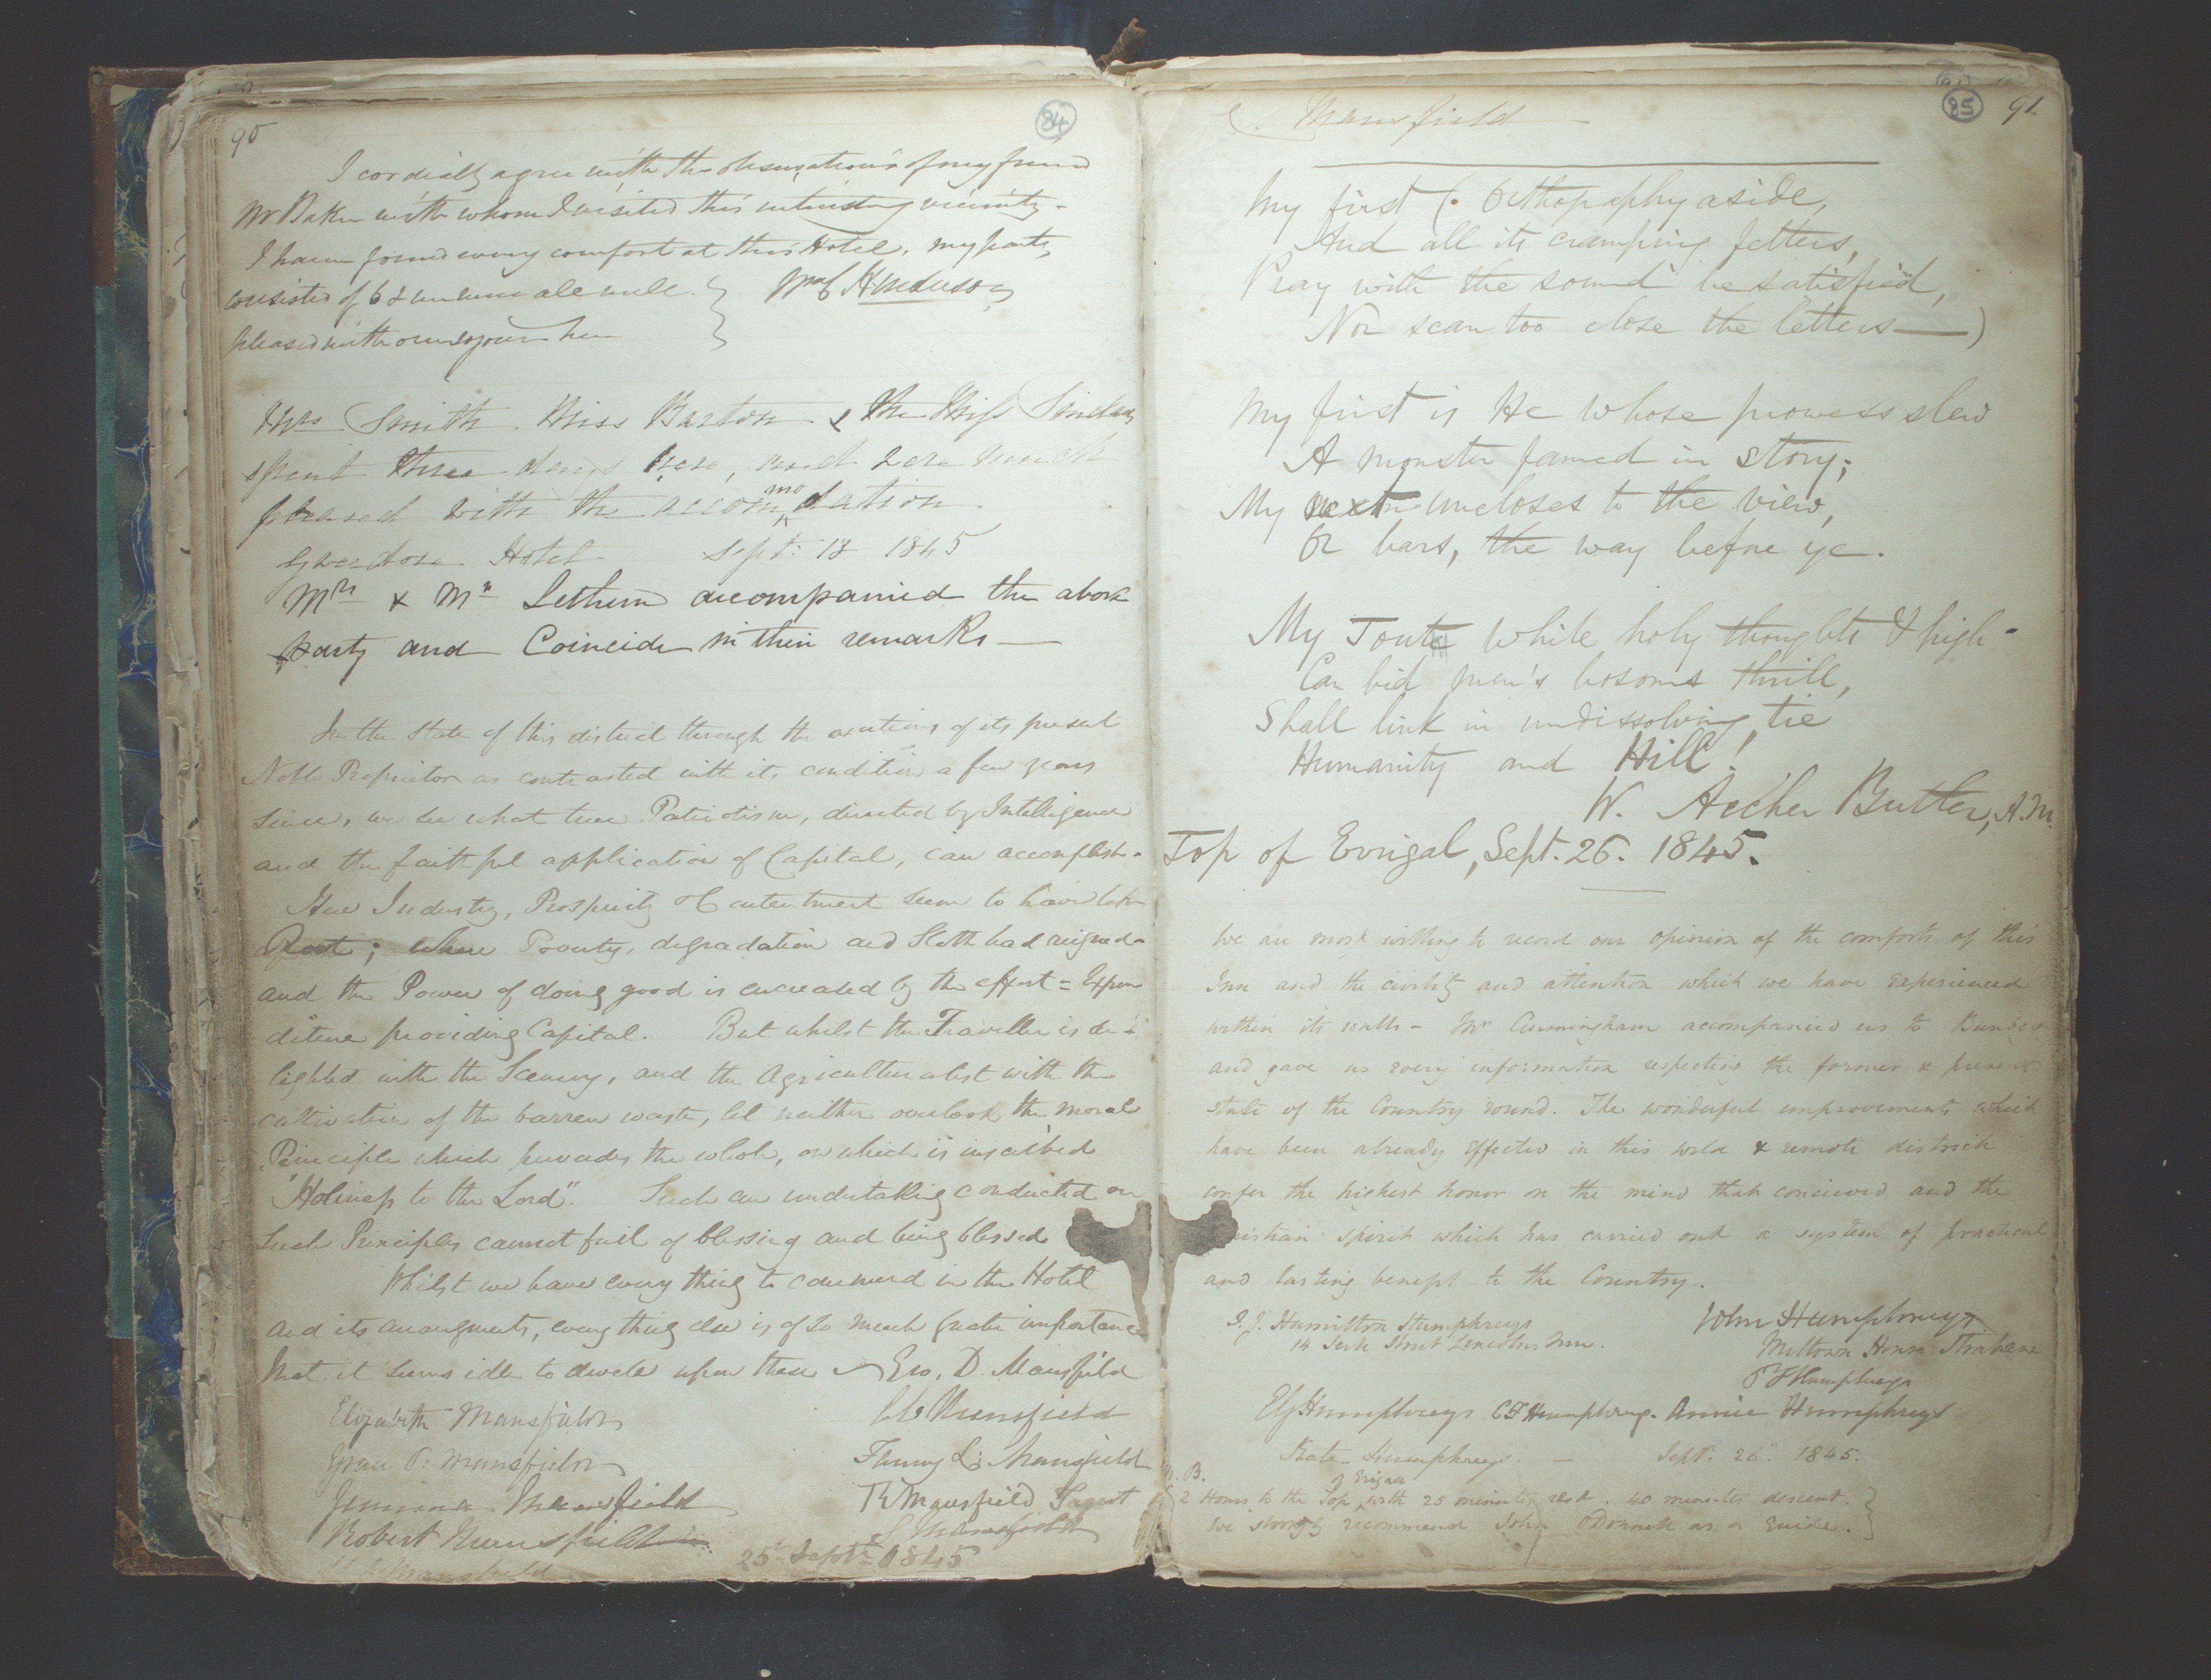 90
84
I cordially agree with the observations of my friend
Mr Baker with whom I visited this interesting vicinity -
I have found every comfort at this Hotel, my party
consisted of 6 & we were all well
pleased with our sojour here
Wm Henderson
Mrs Smith Miss Barton & the Miss
spent three days here, and were much
pleased with the accommodation
Gweedore Hotel Sept: 18 1845
Mrs & Mr Lethem accompanied the above
party and Coincide in their remarks —
In the State of this district through the exertions of its present
Noble Proprietor as contrasted with its condition a few years
since, we see what true Patriotism, directed by Intelligence
and the faithful application of Capital, can accomplish -
Here Industry, Prosperity & Contentment seem to have taken
Root; where Poverty, degradation and Sloth had reigned -
and the Power of doing good is encreased by the effort = Expen
diture providing Capital. But whilst the Traveller is de-
lighted with the Scenery, and the Agriculturalist with the
cultivation of the barren waste, let neither overlook the moral
Principle which pervades the whole, on which is inscribed
"Holiness to the Lord". Such an undertaking conducted on
such Principles cannot fail of blessing and being blessed
Whilst we have every thing to commend in the Hotel
and its arrangements, every thing else is of so much greater importance
that it seems idle to dwell upon these — Geo. D. Mansfield
Elizabeth Mansfield
Mansfield
Grace P. Mansfield
Fanny L. Mansfield
Jemima Mansfield
Mansfield
Robert Mansfield
Mansfield
25 Septr 1845
Mansfield
85
91
Mansfield —
My first (. Orthography aside,
And all its cramping fetters,
Pray with the sound be satisfied,
Nor scan too close the letters —)
My first is He whose prowess slew
A monster famed in story;
My next uncloses to the view,
Or bars, the way before ye.
My Toute while holy thoughts & high -
Can bid men's bosoms thrill,
Shall link in undissolving tie
Humanity and Hill!
W. Archer Butler, A.M.
Top of Errigal, Sept. 26. 1845.
We are most willing to record our opinion of the comforts of this
Inn and the civility and attention which we have experienced
within its walls - Mr Cunningham accompanied us to Bunbeg
and gave us every information respecting the former & present
state of the Country round. The wonderful improvements which
have been already effected in this wild & remote district
confer the highest honor on the mind that conceived and the
spirit which has carried out a system of practical
and lasting benefit to the Country.
I. J. Hamilton Humphreys
14 Serle Street Lincolns Inn.
John Humphreys
Milltown House Strabane
Humphreys
Humphreys C F Humphreys. Annie Humphreys
Kate Humphreys — Sept. 26. 1845.
N. B.
2 Hours to the Top of Erigal with 25 minutes rest. 40 minutes descent.
We strongly recommend John O'Donnell as a Guide.